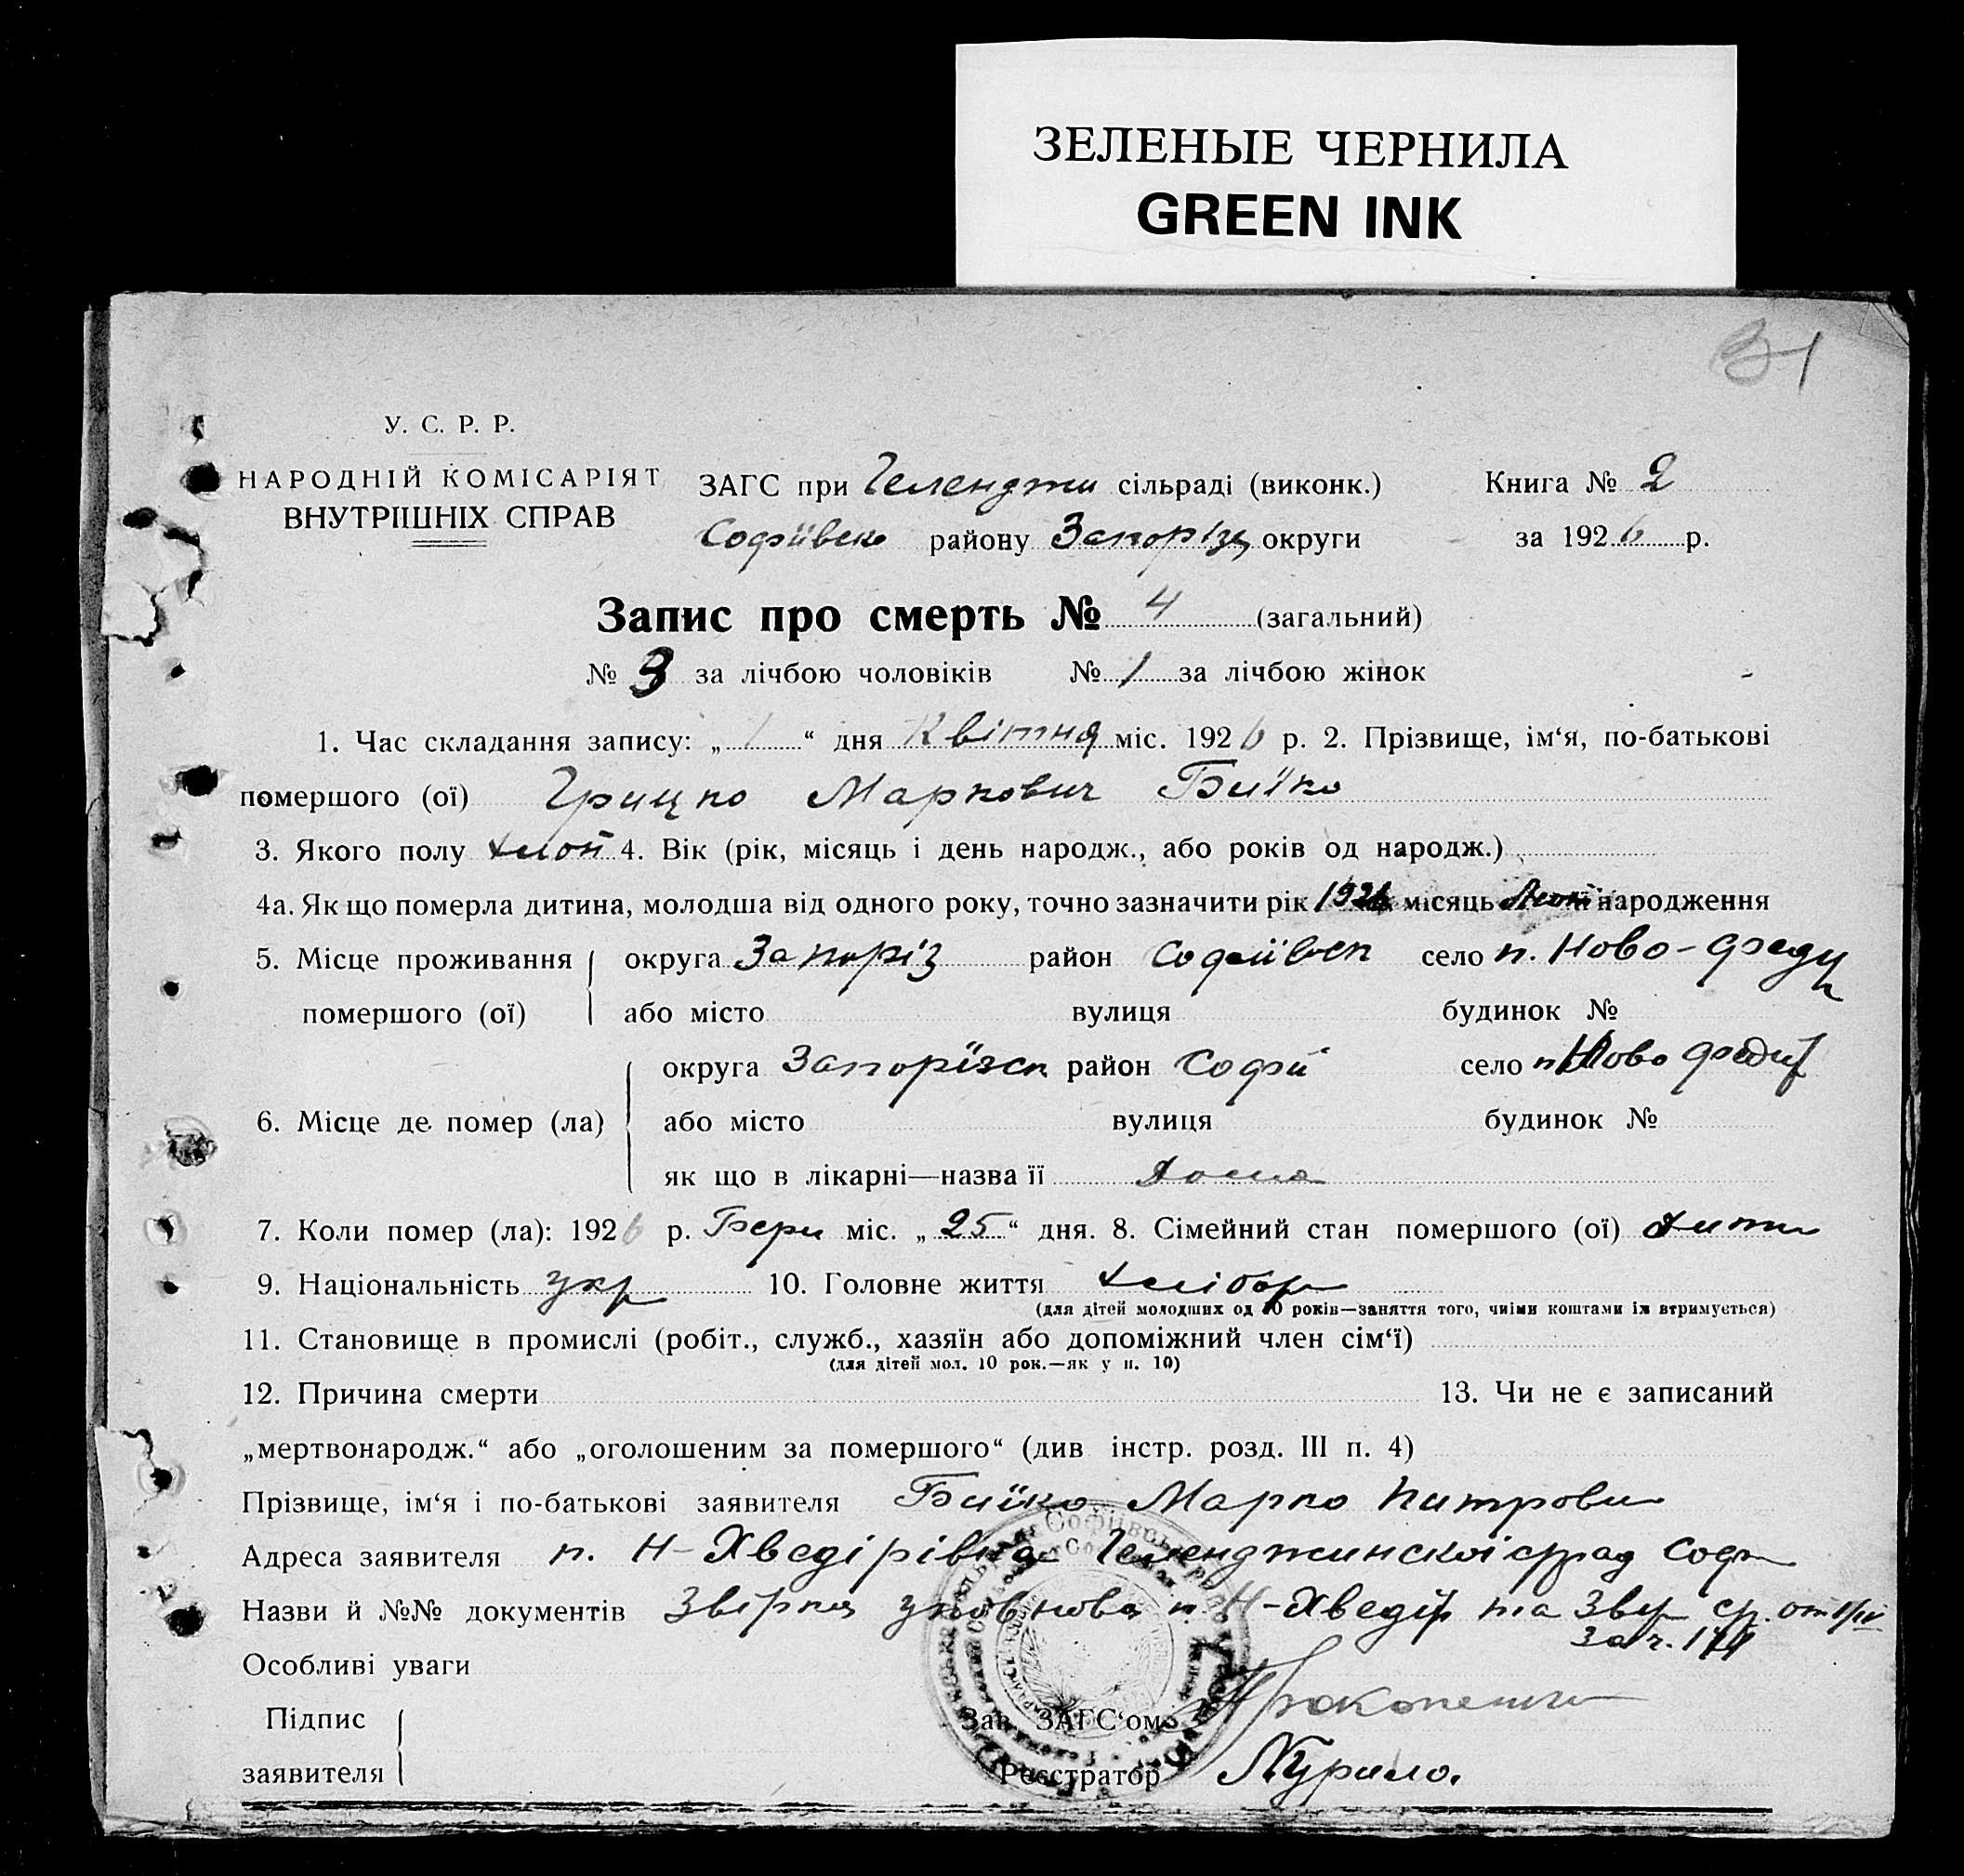 ЗЕЛЕНЫЕ ЧЕРНИЛА
GREEN INK
31
У. С. Р. Р.
НАРОДНІЙ КОМІСАРІЯТ
ВНУТРІШНІХ СПРАВ
ЗАГС при Геленджи сільраді (виконк.)
Софіївськ району Запоріз округи
Книга № 2
за 1926 р.
Запис про смерть № 4 (загальний)
№ 3 за лічбою чоловіків № 1 за лічбою жінок
1. Час складання запису: „ 1 “ дня Квітня міс. 1926 р. 2. Прізвище, ім‘я, по-батькові
помершого (ої) Грицко Маркович Бийко
3. Якого полу хлоп 4. Вік (рік, місяць і день народж., або років од народж.)
4а. Як що померла дитина, молодша від одного року, точно зазначити рік 1926 місяць Лют народження
5. Місце проживання округа Запоріз район Софиївск село п. Ново-Федір
помершого (ої) або місто вулиця будинок №
6. Місце де помер (ла) округа Запорїзск район Софії село п Ново Федір
або місто вулиця будинок №
як що в лікарні—назва її дома
7. Коли помер (ла): 1926 р. Бери міс. „ 25 “ дня. 8. Сімейний стан помершого (ої) дити
9. Національність укр 10. Головне життя хлібор
(для дітей молодших од 10 років—заняття того, чиїми коштами їх втримується)
11. Становище в промислі (робіт., служб., хазяїн або допоміжний член сім‘ї)
(для дітей мол. 10 рок.—як у п. 10)
12. Причина смерти 13. Чи не є записаний
„мертвонародж.“ або „оголошеним за помершого“ (див інстр. розд. III п. 4)
Прізвище, ім‘я і по-батькові заявителя Бийко Марко Питрови
Адреса заявителя п. Н-Хведірівка Геленджинскоі срад Соф
Назви й №№ документів Звірка уповнова п. Н-Хведір та Звер ср. от 1/IV
за ч. 174
Особливі уваги
Підпис
заявителя
Зав. ЗАГС‘ом Прокопенко
Реєстратор Мурило.